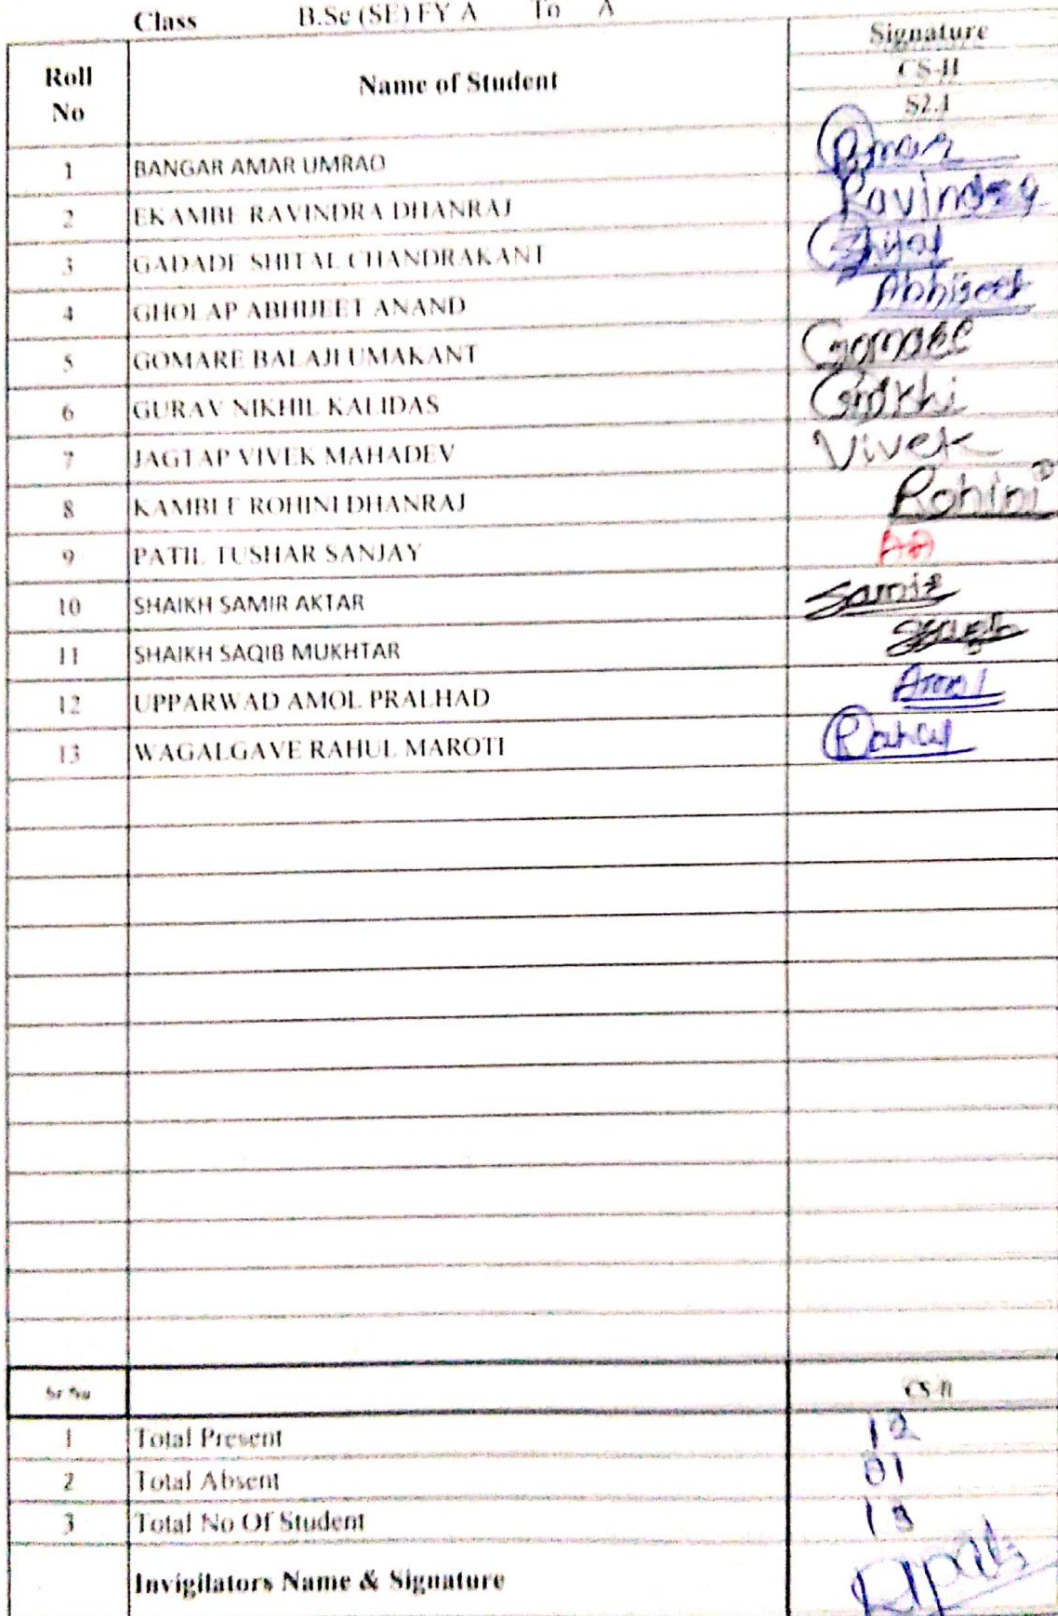 Class B.Sc (SE) FY A To A
Roll No Name of Student Signature
CS-II
S2.1
1 BANGAR AMAR UMRAO Amar
2 EKAMBE RAVINDRA DHANRAJ Ravindra
3 GADADE SHITAL CHANDRAKANT Shital
4 GHOLAP ABHIJEET ANAND Abhijeet
5 GOMARE BALAJI UMAKANT Gomare
6 GURAV NIKHIL KALIDAS
7 JAGTAP VIVEK MAHADEV Vivek
8 KAMBLE ROHINI DHANRAJ Rohini
9 PATIL TUSHAR SANJAY AA
10 SHAIKH SAMIR AKTAR Samir
11 SHAIKH SAQIB MUKHTAR
12 UPPARWAD AMOL PRALHAD Amol
13 WAGALGAVE RAHUL MAROTI Rahul
Sr No CS-II
1 Total Present 12
2 Total Absent 01
3 Total No Of Student 13
Invigilators Name & Signature